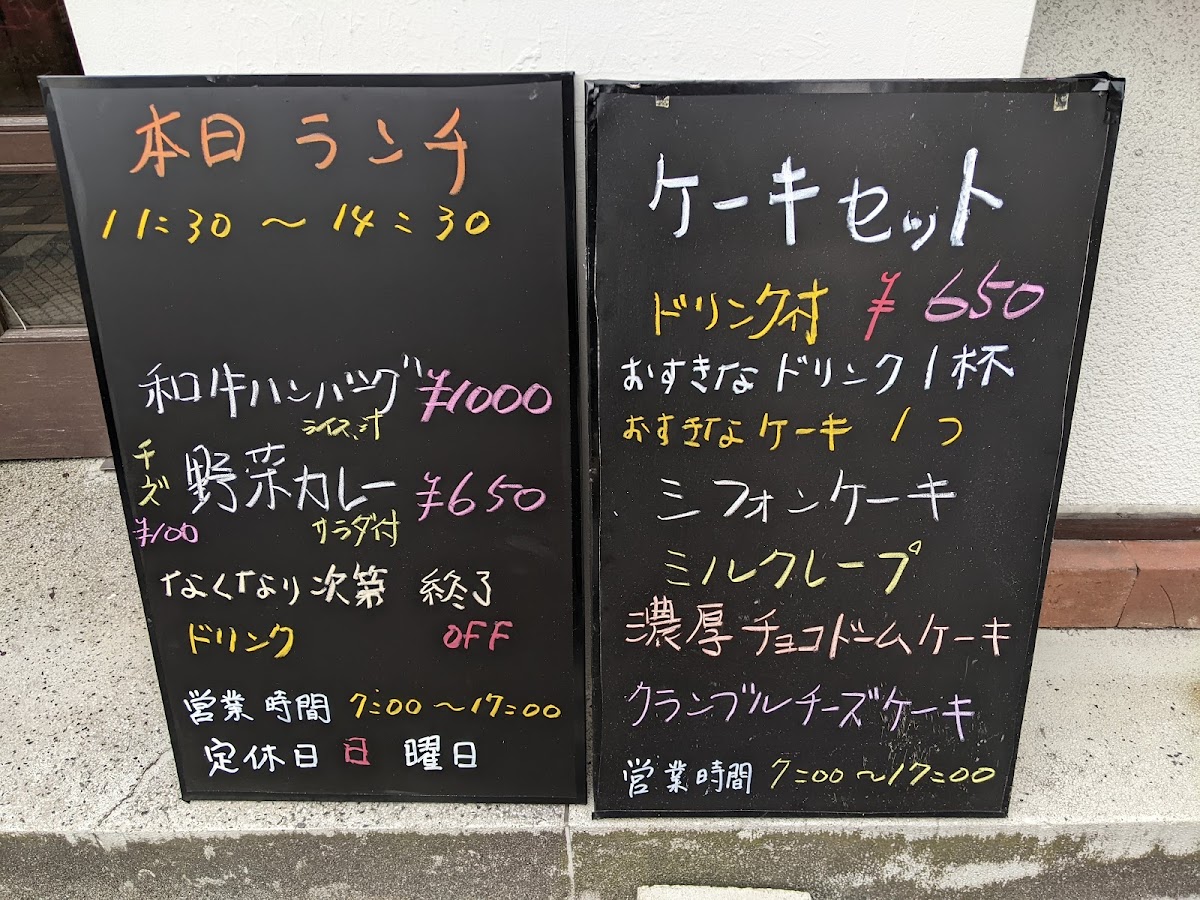 本日 ランチ
11:30 〜 14:30
和牛ハンバーグ ¥1000
ライス、汁
チーズ ¥100
野菜カレー ¥650
サラダ付
なくなり次第 終了
ドリンク OFF
営業時間 7:00 〜17:00
定休日 日 曜日
ケーキセット
ドリンク付 ¥ 650
おすきなドリンク1杯
おすきなケーキ 1つ
シフォンケーキ
ミルクレープ
濃厚チョコドームケーキ
クランブルチーズケーキ
営業時間 7:00 〜17:00